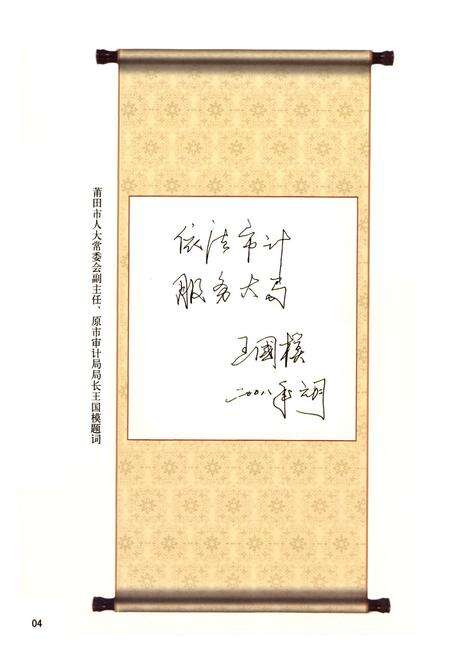 依法审计
服务大局
王國模
二00八年元月
莆田市人大常委会副主任、原市审计局局长王国模题词
04